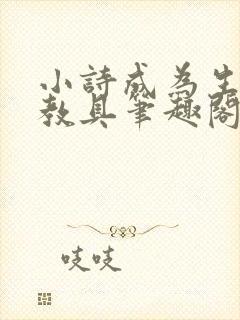 小詩成為生
教具筆趣閣
吱吱